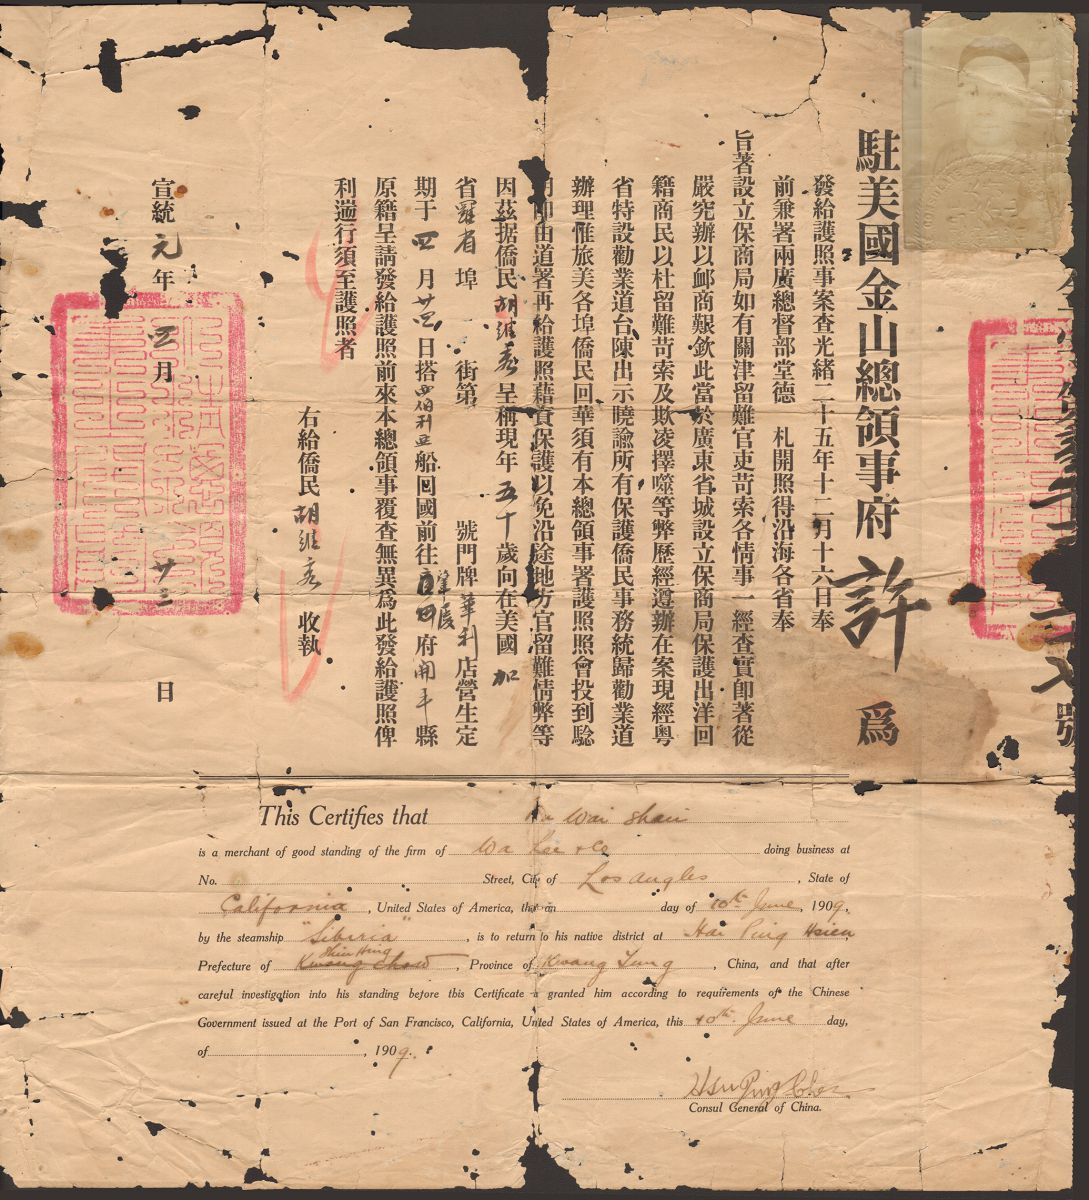 駐美國金山總領事府 許 爲
發給護照事案查光緒二十五年十二月十六日奉
前兼署兩廣總督部堂德 札開照得沿海各省奉
旨著設立保商局如有關津留難官吏苛索各情事一經查實卽著從
嚴究辦以卹商艱欽此當於廣東省城設立保商局保護出洋回
籍商民以杜留難苛索及欺凌擇噬等弊歷經遵辦在案現經粵
省特設勸業道台陳出示曉諭所有保護僑民事務統歸勸業道
辦理惟旅美各埠僑民回華須有本總領事署護照照會投到騐
明卽由道署再給護照藉資保護以免沿途地方官留難情弊等
因茲据僑民胡維 呈稱現年五十歲向在美國 加
省羅省埠 街第 號門牌華利店營生定
期于四月廿四日搭西伯利亞船囘國前往肇慶府開平縣
原籍呈請發給護照前來本總領事覆查無異爲此發給護照俾
利遄行須至護照者
右給僑民胡維 收執
宣統元年四月廿三日
號
This Certifies that Hu Wai Shan
is a merchant of good standing of the firm of Wa Lee & Co doing business at
No. Street, City of Los Angles, State of
California, United States of America, that on day of 10th June, 1909,
by the steamship "Siberia", is to return to his native district at Hai Ping Hsien
Prefecture of Shiu Hing Kwang Chow, Province of Kwang Tung, China, and that after
careful investigation into his standing before this Certificate is granted him according to requirements of the Chinese
Government issued at the Port of San Francisco, California, United States of America, this 10th June day,
of , 1909.
Hsu Ping Chen
Consul General of China.